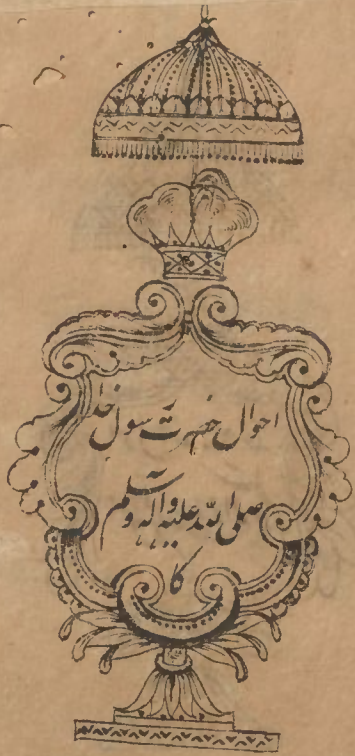 احوال حضرت رسول خدا
صلی اللہ علیہ وآلہ وسلم
کا